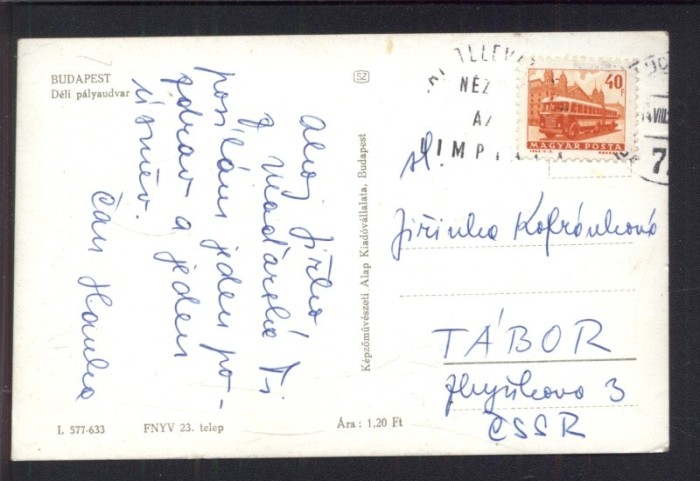 BUDAPEST
Déli pályaudvar
Ahoj Jiřko
Z Maďarska Ti
posílám jeden po-
zdrav a jeden
úsměv.
Čau Hanka
I. 577-633
FNYV 23. telep
Ára : 1,20 Ft
SZ
Képzőművészeti Alap Kiadóvállalata, Budapest
NÉZ
AZ
40 F
MAGYAR POSTA
VIII
sl.
Jiřinka Kofránková
TÁBOR
3
ČSSR